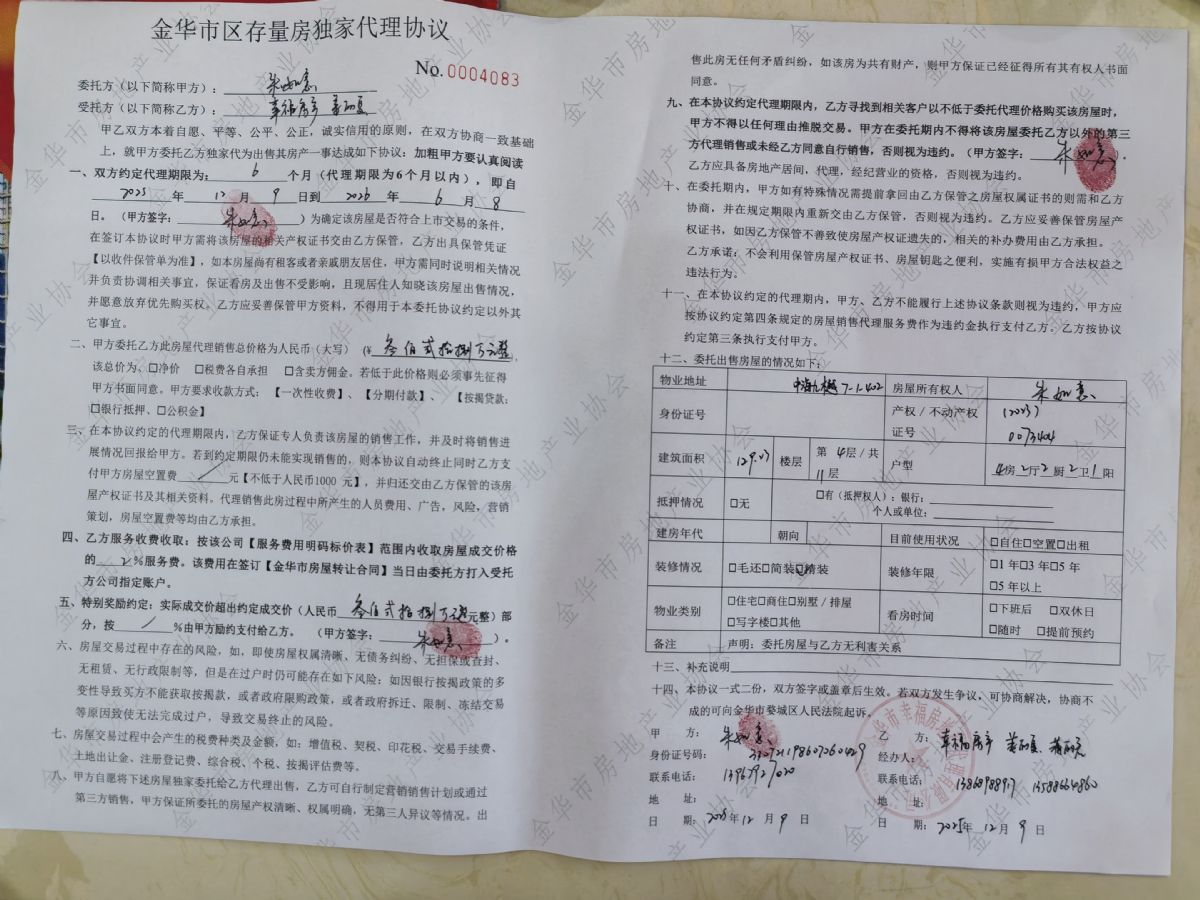 金华市区存量房独家代理协议
No.0004083
委托方（以下简称甲方）：朱如意
受托方（以下简称乙方）：幸福房产
甲乙双方本着自愿、平等、公平、公正，诚实信用的原则，在双方协商一致基础
上，就甲方委托乙方独家代为出售其房产一事达成如下协议：加粗甲方要认真阅读
一、双方约定代理期限为：6个月（代理期限为6个月以内），即自
2025年12月9日到2026年6月8
日。（甲方签字：朱如意）为确定该房屋是否符合上市交易的条件，
在签订本协议时甲方需将该房屋的相关产权证书交由乙方保管，乙方出具保管凭证
【以收件保管单为准】，如本房屋尚有租客或者亲戚朋友居住，甲方需同时说明相关情况
并负责协调相关事宜，保证看房及出售不受影响，且现居住人知晓该房屋出售情况，
并愿意放弃优先购买权。乙方应妥善保管甲方资料，不得用于本委托协议约定以外其
它事宜。
二、甲方委托乙方此房屋代理销售总价格为人民币（大写）（¥叁佰贰拾捌万元整，
该总价为、□净价 □税费各自承担 □含卖方佣金。若低于此价格则必须事先征得
甲方书面同意。甲方要求收款方式：【一次性收费】、【分期付款】、【按揭贷款：
□银行抵押、□公积金】
三、在本协议约定的代理期限内，乙方保证专人负责该房屋的销售工作，并及时将销售进
展情况回报给甲方。若到约定期限仍未能实现销售的，则本协议自动终止同时乙方支
付甲方房屋空置费／元【不低于人民币1000 元】，并归还交由乙方保管的该房
屋产权证书及其相关资料，代理销售此房过程中所产生的人员费用、广告，风险，营销
策划，房屋空置费等均由乙方承担。
四、乙方服务收费收取：按该公司【服务费用明码标价表】范围内收取房屋成交价格
的2%服务费。该费用在签订【金华市房屋转让合同】当日由委托方打入受托
方公司指定账户。
五、特别奖励约定：实际成交价超出约定成交价（人民币叁佰贰拾捌万元整）部
分，按／%由甲方励约支付给乙方。（甲方签字：朱如意）。
六、房屋交易过程中存在的风险，如，即使房屋权属清晰、无债务纠纷、无担保或查封、
无租赁、无行政限制等，但是在过户时仍可能存在如下风险：如因银行按揭政策的多
变性导致买方不能获取按揭款，或者政府限购政策，或者政府拆迁、限制、冻结交易
等原因致使无法完成过户，导致交易终止的风险。
七、房屋交易过程中会产生的税费种类及金额，如：增值税、契税、印花税、交易手续费、
土地出让金、注册登记费、综合税、个税、按揭评估费等。
八、甲方自愿将下述房屋独家委托给乙方代理出售，乙方可自行制定营销销售计划或通过
第三方销售，甲方保证所委托的房屋产权清晰、权属明确，无第三人异议等情况。出
售此房无任何矛盾纠纷，如该房为共有财产，则甲方保证已经征得所有其有权人书面
同意。
九、在本协议约定代理期限内，乙方寻找到相关客户以不低于委托代理价格购买该房屋时，
甲方不得以任何理由推脱交易。甲方在委托期内不得将该房屋委托乙方以外的第三
方代理销售或未经乙方同意自行销售，否则视为违约。（甲方签字：朱如意）。
乙方应具备房地产居间，代理，经纪营业的资格，否则视为违约。
十、在委托期内，甲方如有特殊情况需提前拿回由乙方保管之房屋权属证书的则需和乙方
协商，并在规定期限内重新交由乙方保管，否则视为违约。乙方应妥善保管房屋产
权证书，如因乙方保管不善致使房屋产权证遗失的，相关的补办费用由乙方承担。
乙方承诺：不会利用保管房屋产权证书、房屋钥匙之便利，实施有损甲方合法权益之
违法行为。
十一、在本协议约定的代理期内，甲方、乙方不能履行上述协议条款则视为违约，甲方应
按协议约定第四条规定的房屋销售代理服务费作为违约金执行支付乙方。乙方按协议
约定第三条执行支付甲方。
十二、委托出售房屋的情况如下：
物业地址 中海九樾7-1-402 房屋所有权人 朱如意
身份证号 产权／不动产权
证号 (2023) 0073404
建筑面积 129.03 楼层 第4层／共
11层 户型 4房2厅2厨2卫1阳
抵押情况 □无 □有（抵押权人）：银行：
个人或单位：
建房年代 朝向 目前使用状况 □自住□空置□出租
装修情况 □毛还□简装☑精装 装修年限 □1年□3年□5年
□5年以上
物业类别 □住宅□商住□别墅／排屋
□写字楼□其他 看房时间 □下班后 □双休日
□随时 □提前预约
备注 声明：委托房屋与乙方无利害关系
十三、补充说明
十四、本协议一式二份，双方签字或盖章后生效。若双方发生争议，可协商解决，协商不
成的可向金华市婺城区人民法院起诉。
甲 方：朱如意 乙 方：幸福房产
身份证号码： 经办人：
联系电话：13967927020 联系电话：13868988917 13588664860
地 址： 地 址：
日 期：2025年12月9日 日 期：2025年12月9日